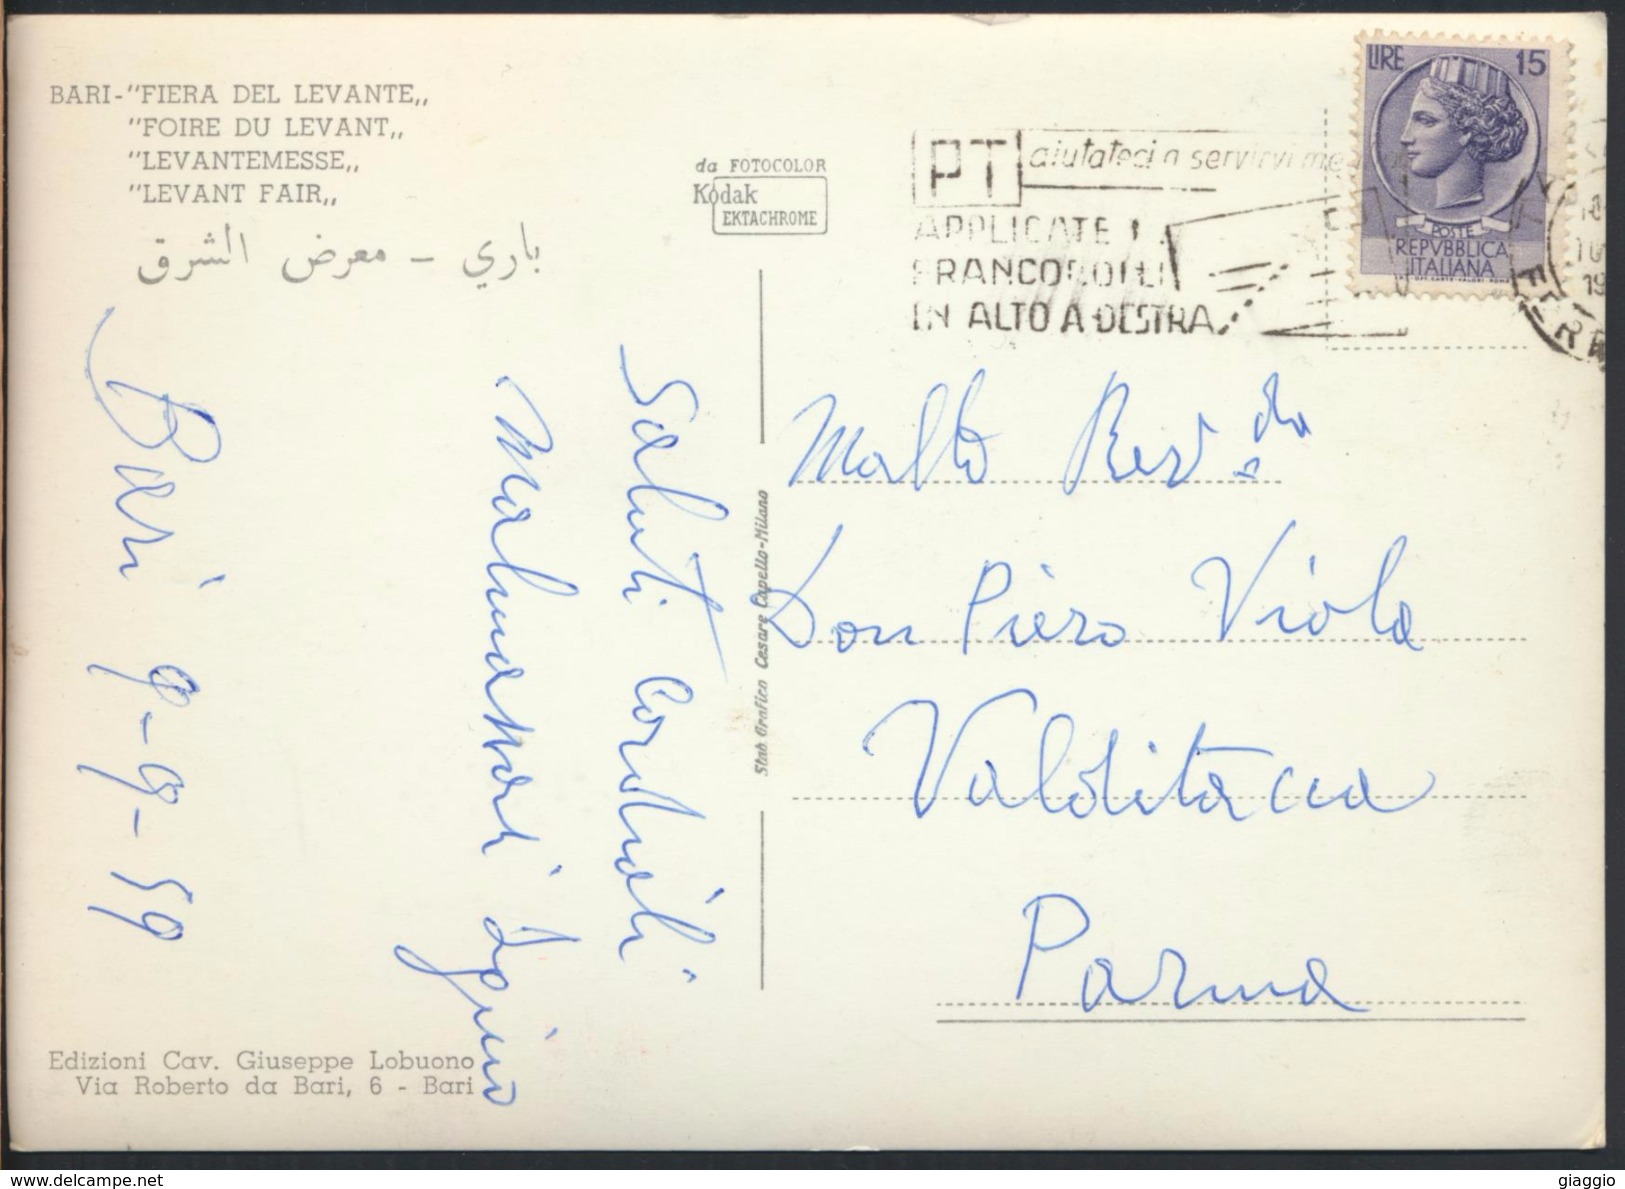 BARI-"FIERA DEL LEVANTE,,
"FOIRE DU LEVANT,,
"LEVANTEMESSE,,
"LEVANT FAIR,,
باري - معرض الشرق
da FOTOCOLOR
Kodak
EKTACHROME
PT aiutateci a servirvi
APPLICATE I
FRANCOBOLLI
IN ALTO A DESTRA
LIRE 15
POSTE
REPVBBLICA
ITALIANA
Saluti Cordiali
Igino
Bari 9-9-59
Stab Grafico Cesare Capello-Milano
Molto Rev.do
Don Piero Viola
Valditacca
Parma
Edizioni Cav. Giuseppe Lobuono
Via Roberto da Bari, 6 - Bari
www.delcampe.net
giaggio